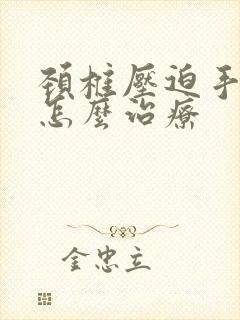 頚椎壓迫手
怎麼治療
金忠立